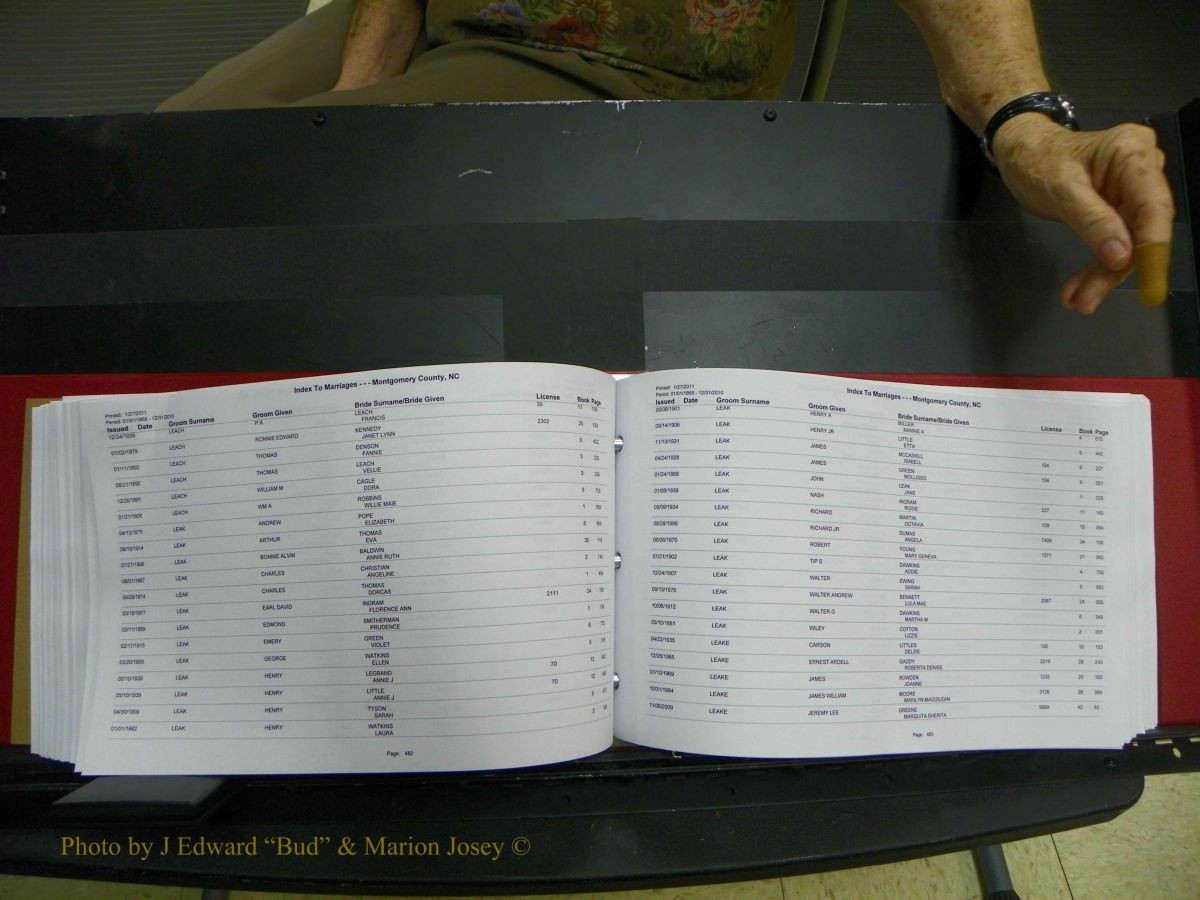 Index To Marriages - - - Montgomery County, NC
Printed: 1/27/2011
Period: 01/01/1868 - 12/31/2010
Issued Date Groom Surname Groom Given Bride Surname/Bride Given License Book Page
LEACH P A LEACH 35 11
FRANCIS
LEACH RONNIE EDWARD KENNEDY 2302 25
JANET LYNN
LEACH THOMAS DENSON 3
FANNIE
LEACH THOMAS LEACH 3
VELLIE
LEACH WILLIAM M CAGLE 3
DORA
LEACH WM A ROBBINS 5
WILLIE MAIE
04/13/1875 LEAK ANDREW POPE 1
ELIZABETH
LEAK ARTHUR THOMAS 6
EVA
LEAK BONNIE ALVIN BALDWIN
ANNIE RUTH
LEAK CHARLES CHRISTIAN 2
ANGELINE
09/29/1874 LEAK CHARLES THOMAS 1
DORCAS
03/18/1977 LEAK EARL DAVID INGRAM 2111 24
FLORENCE ANN
LEAK EDMOND SMITHERMAN 1
PRUDENCE
02/17/1915 LEAK EMERY GREEN 6
VIOLET
03/20/1905 LEAK GEORGE WATKINS 5
ELLEN
09/10/1939 LEAK HENRY LEGRAND 70 12
ANNIE J
09/10/1939 LEAK HENRY LITTLE 70 12
ANNIE J
04/20/1909 LEAK HENRY TYSON 5
SARAH
01/01/1882 LEAK HENRY WATKINS 2
LAURA
Page: 482
Printed: 1/27/2011
Period: 01/01/1868 - 12/31/2010
Index To Marriages - - - Montgomery County, NC
Issued Date Groom Surname Groom Given Bride Surname/Bride Given License Book Page
LEAK HENRY A MILLER 4
NANNIE A
09/14/1906 LEAK HENRY JR LITTLE 5 442
ETTA
11/13/1931 LEAK JAMES MCCASKILL 124 9 237
ISABELL
04/24/1928 LEAK JAMES GREEN 134 9
MOLLISSO
01/24/1868 LEAK JOHN LEAK 1
JANE
01/08/1938 LEAK NASH INGRAM 227 11
ROSIE
09/09/1934 LEAK RICHARD MARTIN 10
OCTAVIA
08/28/1996 LEAK RICHARD JR DUMAS 34
ANGELA
06/06/1970 LEAK ROBERT YOUNG 1371 21
MARY GENEVA
01/21/1902 LEAK TIP S DAWKINS 4
ADDIE
12/24/1907 LEAK WALTER EWING 5
SARAH
09/13/1976 LEAK WALTER ANDREW BENNETT 2067 24
LULA MAE
10/06/1912 LEAK WALTER G DAWKINS 6
MARTHA W
LEAK WILEY COTTON 2
LIZZIE
04/22/1935 LEAKE CARSON LITTLES 10 153
DELSIE
12/06/1985 LEAKE ERNEST ARDELL GADDY 28 243
ROBERTA DENISE
01/10/1969 LEAKE JAMES BOWDEN 1232 20
JOANNE
10/31/1984 LEAKE JAMES WILLIAM MOORE 3136 28
MARILYN MAGGILEAN
11/06/2009 LEAKE JEREMY LEE GREENE 43
MARQUITA SHERITA
Page: 483
Photo by J Edward “Bud” & Marion Josey ©